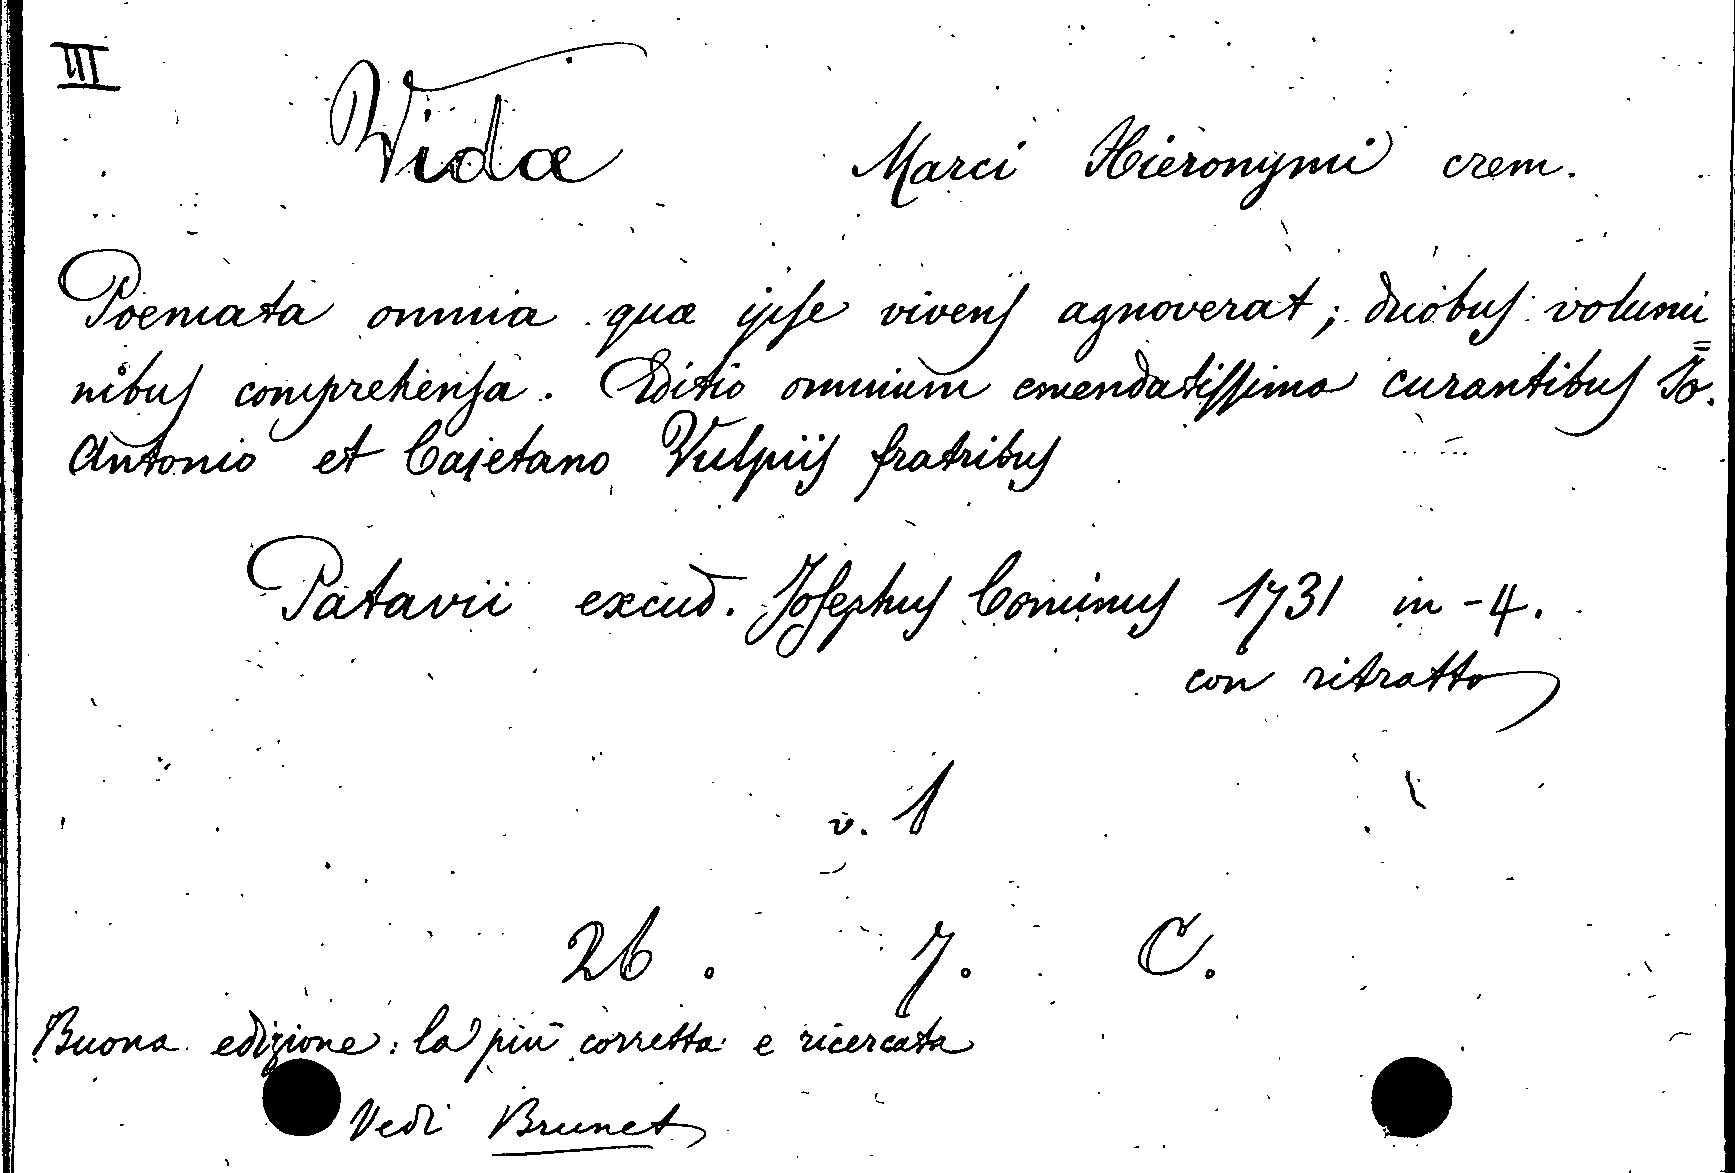 III
Vidæ Marci Hieronymi crem.
Poemata omnia quæ ipse vivens agnoverat; duobus volumi=
nibus comprehensa. Editio omnium emendatissima curantibus Io.
Antonio et Cajetano Vulpiis fratribus
Patavii excud. Josephus Cominus 1731 in-4.
con ritratto
v. 1
26. 7. C.
Buona edizione: la più corretta e ricercata
Vedi Brunet